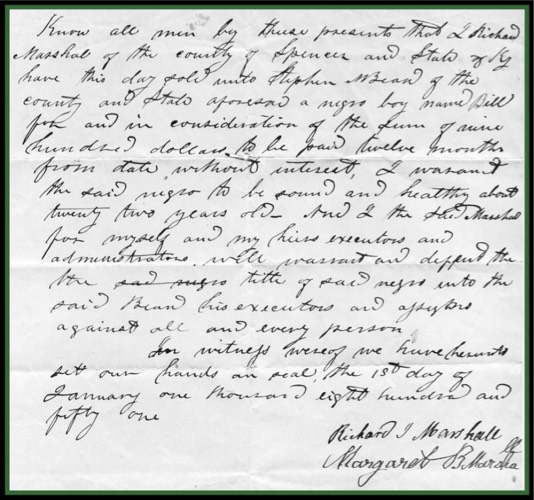 Know all men by these presents that I Richard
Marshal of the county of Spencer and State of Ky
have this day sold unto Stephen M Bean of the
county and State aforesaid a negro boy name Bill
for and in consideration of the sum of nine
hundred dollars, to be paid twelve months
from date without interest, I warant
the said negro to be sound and healthy about
twenty two years old - And I the said Marshal
for myself and my heirs executors and
administrators will warrant and deffend the
the title of said negro unto the
said Beand his executors and assigns
against all and every person
In witness wereof we have hereunto
set our hands an seal, the 1st day of
January one thousand eight hundred and
fifty one
Richard J Marshall
Margaret B Marshall